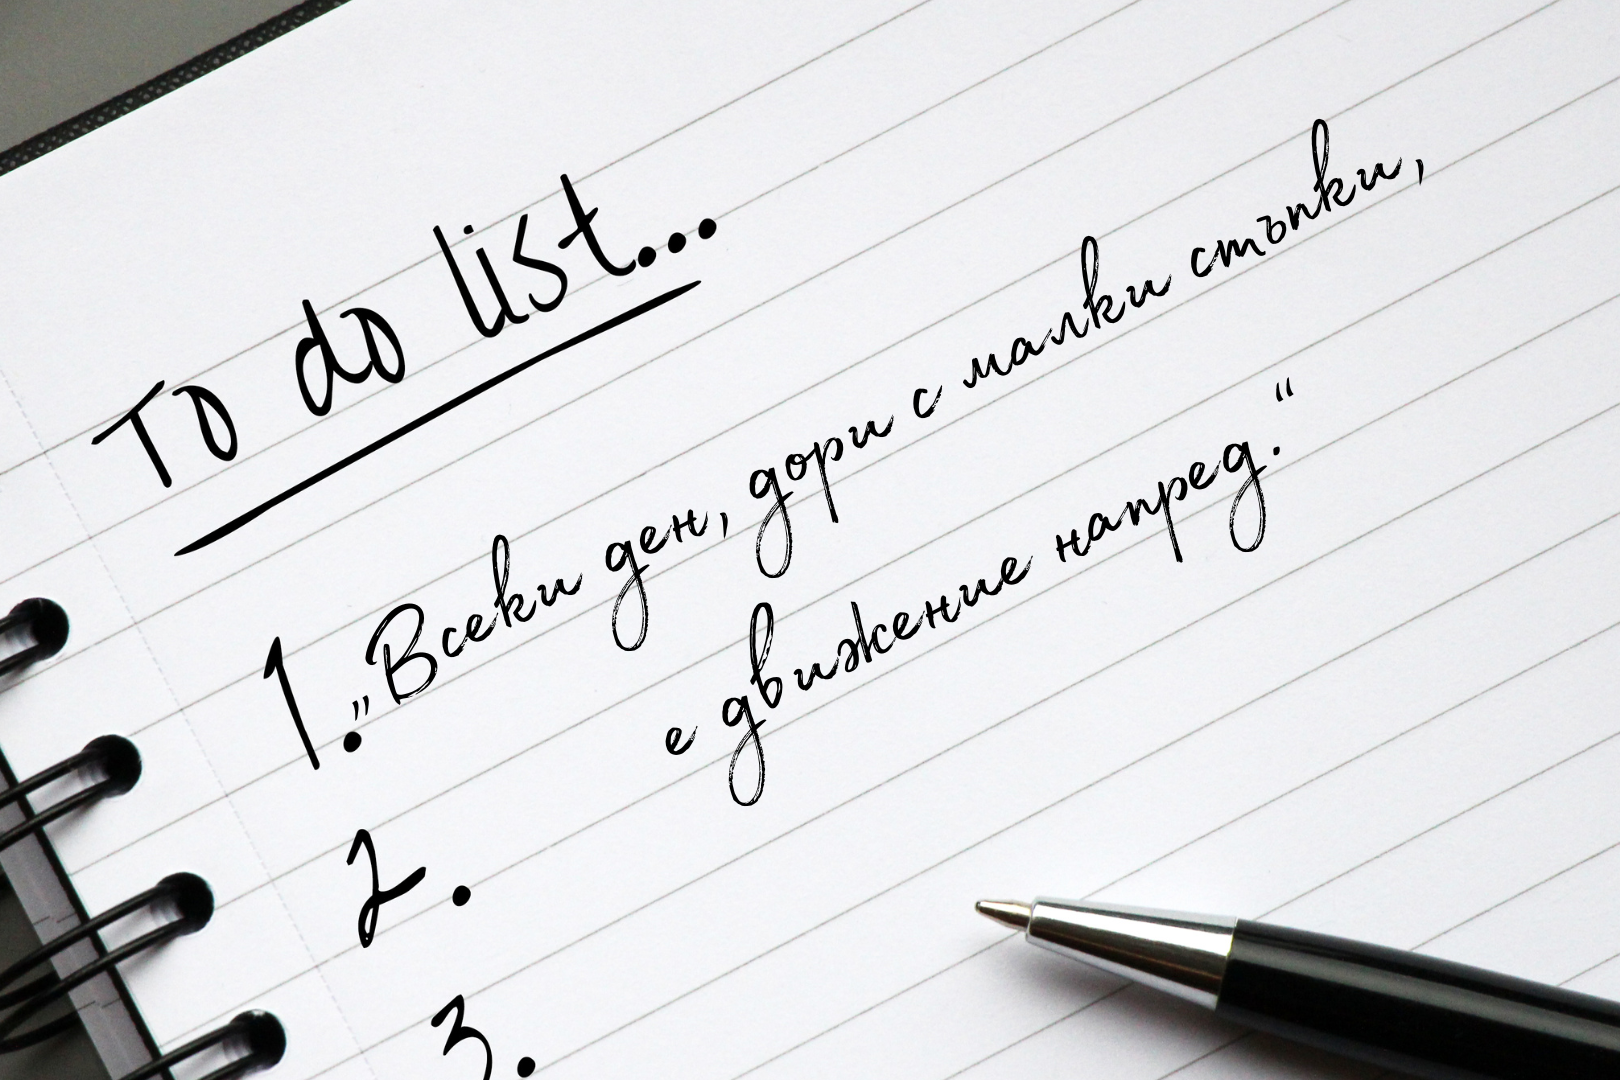 To do list...
1. „Всеки ден, дори с малки стъпки,
е движение напред.“
2.
3.